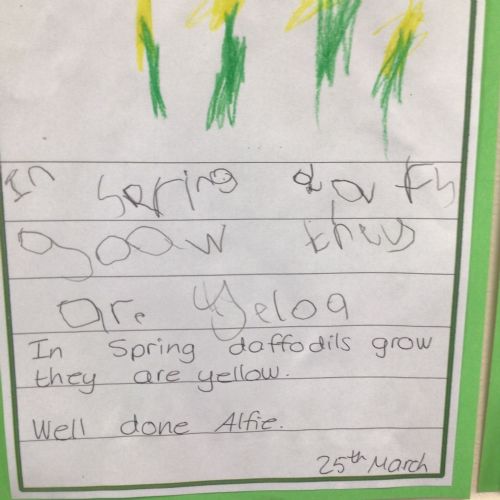 In spring dafh
goow they
are yeloa
In Spring daffodils grow
they are yellow.
Well done Alfie.
25th March